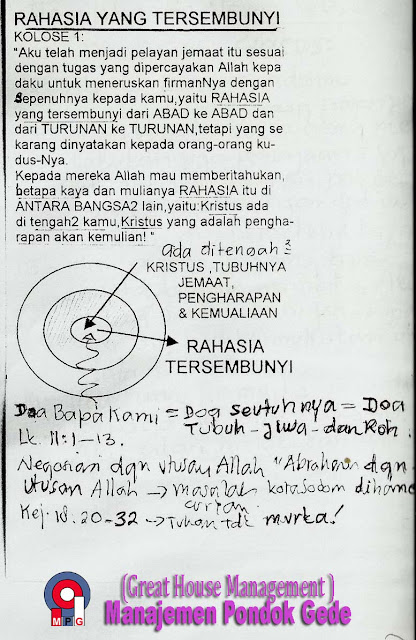 RAHASIA YANG TERSEMBUNYI
KOLOSE 1:
"Aku telah menjadi pelayan jemaat itu sesuai
dengan tugas yang dipercayakan Allah kepa
daku untuk meneruskan firmanNya dengan
sepenuhnya kepada kamu,yaitu RAHASIA
yang tersembunyi dari ABAD ke ABAD dan
dari TURUNAN ke TURUNAN,tetapi yang se
karang dinyatakan kepada orang-orang ku-
dus-Nya.
Kepada mereka Allah mau memberitahukan,
betapa kaya dan mulianya RAHASIA itu di
ANTARA BANGSA2 lain,yaitu:Kristus ada
di tengah2 kamu,Kristus yang adalah pengha-
rapan akan kemulian! "
ada ditengah2
KRISTUS ,TUBUHNYA
JEMAAT,
PENGHARAPAN
& KEMUALIAAN
RAHASIA
TERSEMBUNYI
Doa Bapa Kami = Doa seutuhnya = Doa
Lk. 11:1-13. Tubuh-jiwa-dan Roh.
Negoisasi dgn utusan Allah "Abraham dgn
utusan Allah → masalah kota sodom
Kej. 18. 20-32 → Tuhan tdk murka!
(Great House Management )
Manajemen Pondok Gede
MPG